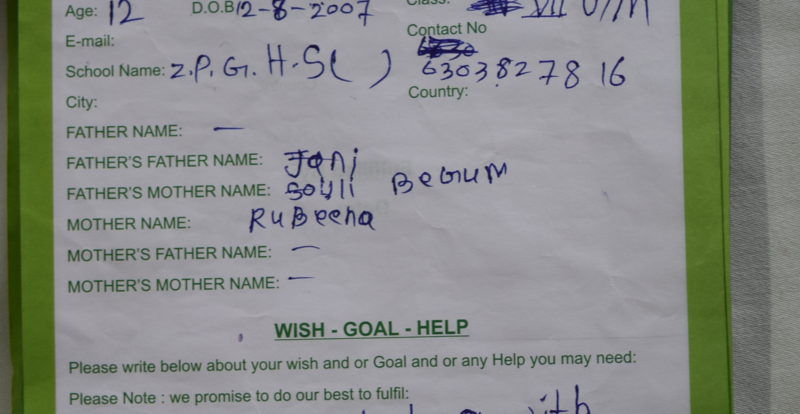 Age: 12 D.O.B 12-8-2007 Class: VII U/M
E-mail: Contact No
School Name: Z.P.G.H.S( ) 6303827816
City: Country:
FATHER NAME: —
FATHER'S FATHER NAME: Jani
FATHER'S MOTHER NAME: BEGUM
MOTHER NAME: RuBeena
MOTHER'S FATHER NAME: —
MOTHER'S MOTHER NAME: —
WISH - GOAL - HELP
Please write below about your wish and or Goal and or any Help you may need:
Please Note : we promise to do our best to fulfil:
with